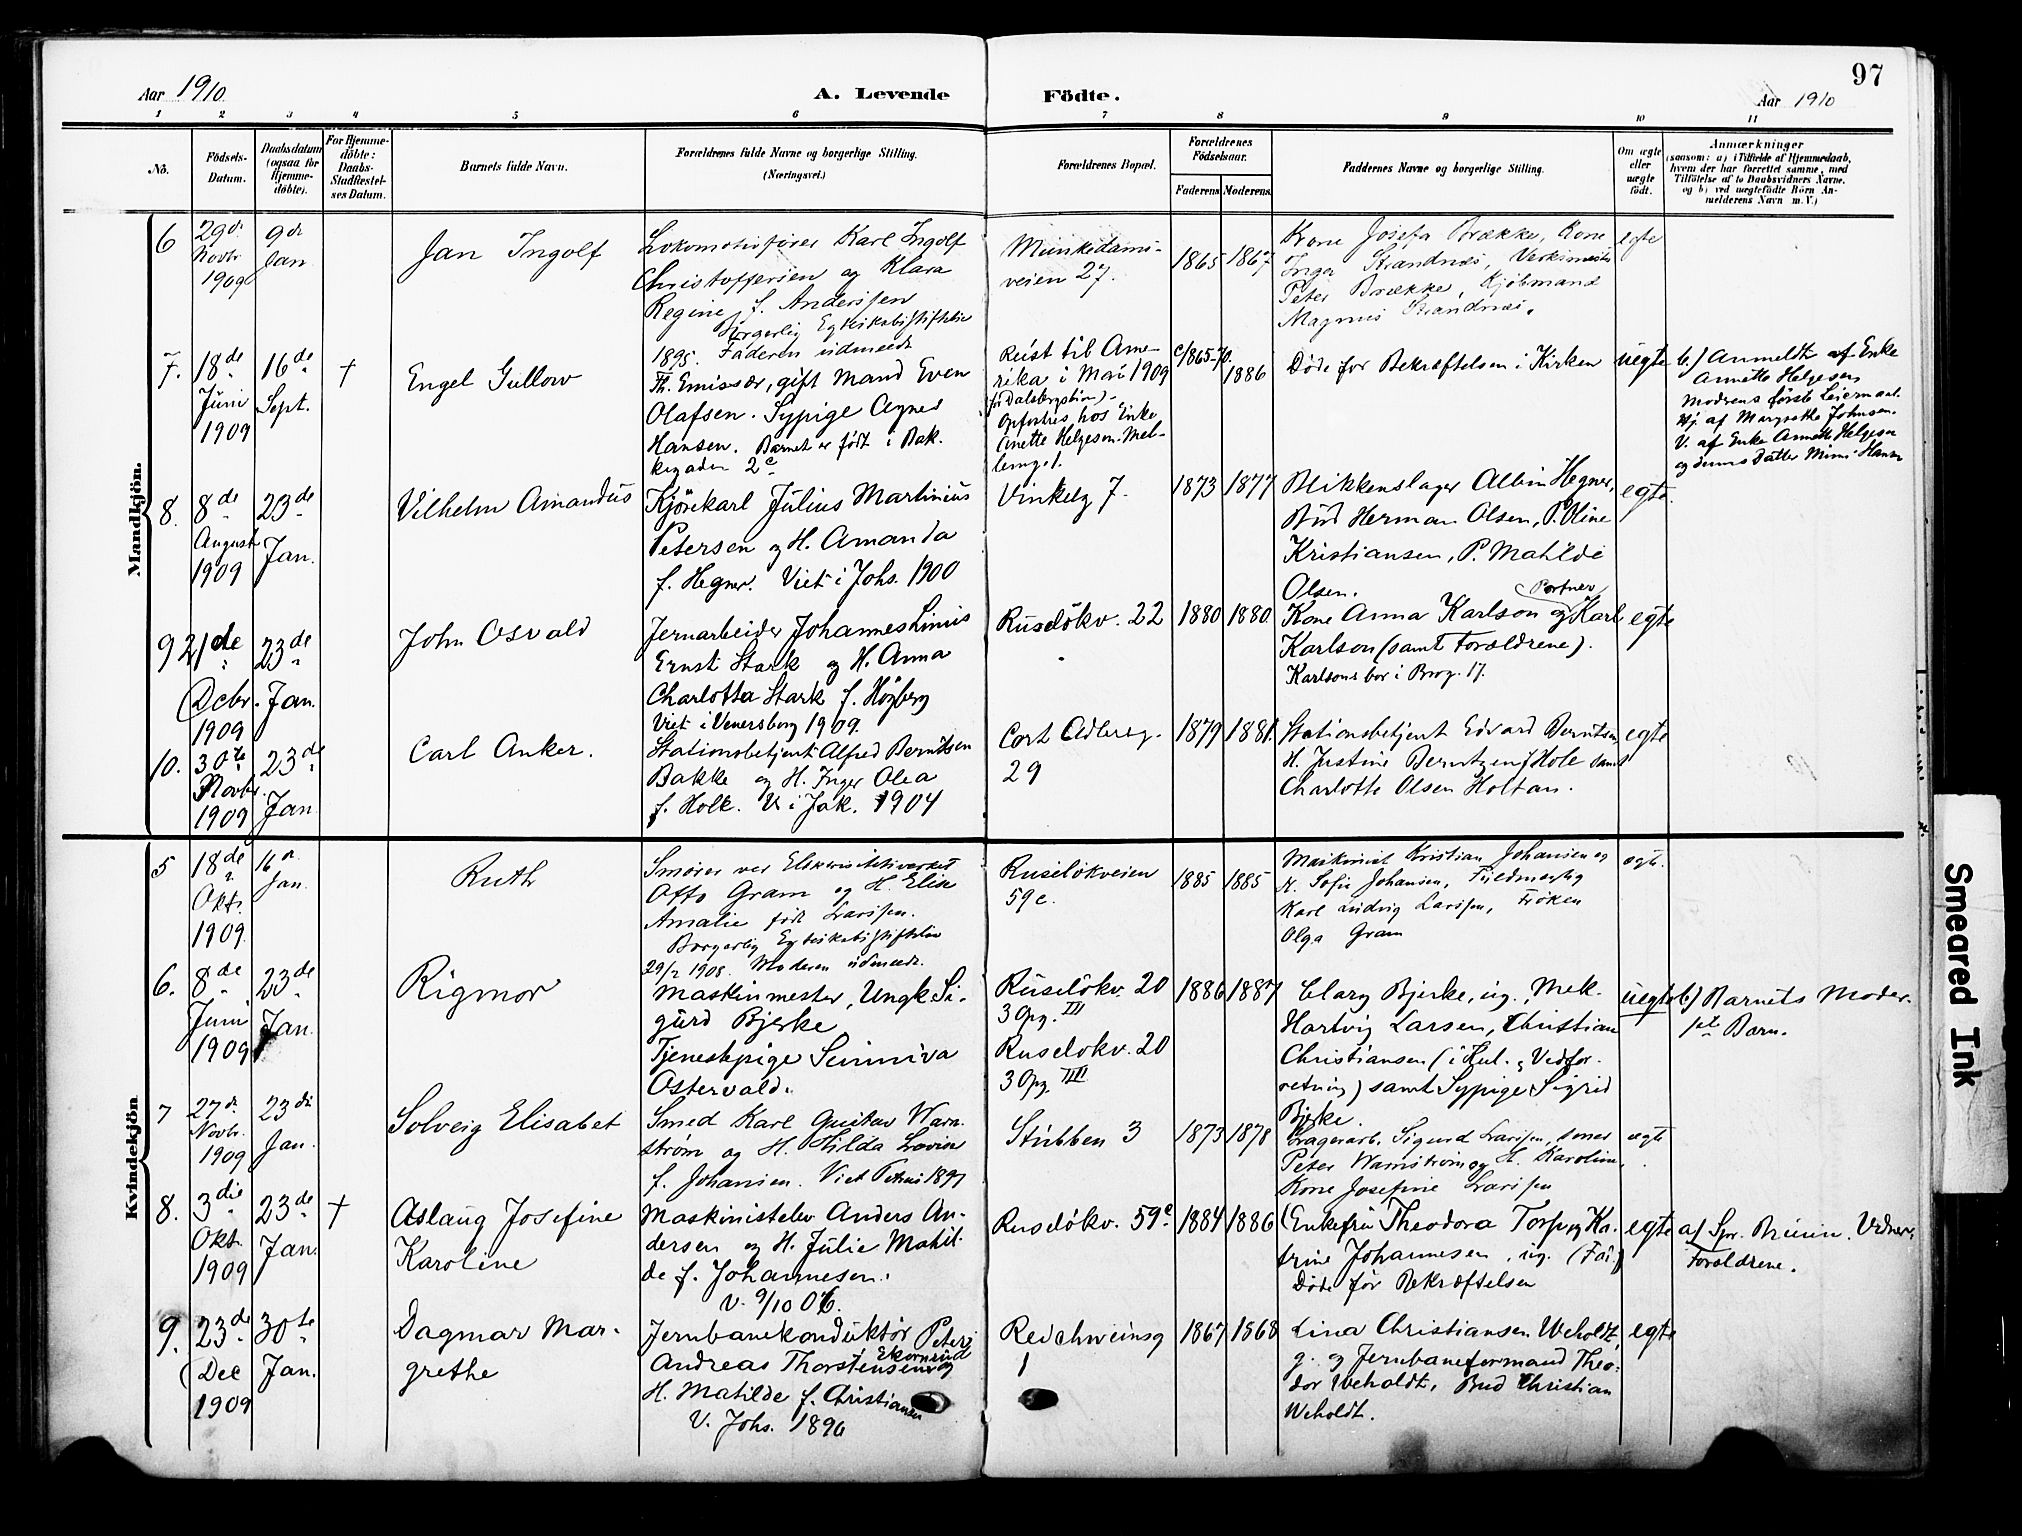 97
Aar 1910
A. Levende
Födte.
Aar 1910
1 2 3 4 5 6 7 8 9 10 11
No.
Födsels-
Datum.
Daabsdatum
(ogsaa for
Hjemme-
döbte).
For Hjemme-
döbte:
Daabs-
Stadfæstel-
ses Datum.
Barnets fulde Navn.
Forældrenes fulde Navne og borgerlige Stilling.
(Næringsvei.)
Forældrenes Bopæl.
Forældrenes
Födselsaar.
Faderens
Moderens
Faddernes Navne og borgerlige Stilling.
Om ægte
eller
uægte
födt.
Anmærkninger
(saasom: a) i Tilfælde af Hjemmedaab,
hvem der har forrettet samme, med
Tilföielse af to Daabsvidners Navne,
og b) ved uægtefödte Börn An-
melderens Navn m.V.)
Mandkjön.
6
29de
Novbr
1909
9de
Jan
Jan Ingolf
Lokomotivfører Karl Ingolf
Christoffersen og Klara
Regine f. Anderssen
Borgerlig Egteskabsstiftelse
1895. Faderen udmeldt
Munkedams-
veien 27.
1865
1867
Kone Josefa Brække, Kone
Inga Strandnæs, Verksmester
Peter Brække, Kjöbmand
Magnus Strandnæs.
egte
7.
18de
Juni
1909
16de
Sept.
†
Engel Gullow
Th. Emissær, gift Mand Even
Olafsen. Sypige Agnes
Hansen. Barnet er født i Bak-
kegaden 2c
Reist til Ame-
rika i Mai 1909
Opfostres hos Enke
Anette Helgesen. Møl-
lerg. 1.
c/1865-70.
1886
Døde før Bekræftelsen i Kirken
uegte
b.) Anmeldt af Enke
Annette Helgesen
Modrens første Leiermaal.
Hj. af Margrethe Johnsen.
V. af Enke Annette Helgesen
og dennes Datter Mimi Hansen
8.
8de
August
1909
23de
Jan.
Vilhelm Amandus
Kjörekarl Julius Martinius
Petersen og H. Amanda
f. Hegner. Viet i Johs. 1900
Vinkelg 7.
1873
1877
Blikkenslager Albin Hegner,
Bud Herman Olsen, P. Oline
Kristiansen, P. Mathilde
Olsen.
egte.
9
21de
Decbr.
1909
23de
Jan.
John Osvald
Jernarbeider Johannes Linus
Ernst Stark og H. Anna
Charlotta Stark f. Högberg
Viet i Venersborg 1909.
Rusdökv. 22
1880
1880.
Portner
Kone Anna Karlson og Karl
Karlson (samt Forældrene).
Karlsons bor i Brog. 17.
egte
10.
30te
Novbr.
1909
23de
Jan
Carl Anker.
Stationsbetjent Alfred Berntsen
Bakke og H. Inger Olea
f. Holt. V. i Jak. 1904
Cort Adlersg.
29
1879
1881.
Stationsbetjent Edvard Berntsen,
H. Justine Berntzen f Hole samt
Charlotte Olsen Holtan.
egte
Kvindekjön
5
18de
Okt.
1909
16de
Jan.
Ruth
Smører ved Elektricitetsverket
Otto Gram og H. Elise
Amalie født Larssen.
Borgerlig Egteskabsstiftelse
29/2 1908. Moderen udmeldt.
Ruselökveien
59c.
1885
1885
Maskinist Kristian Johansen og
H. Sofie Johansen, Fuldmægtig
Karl Ludvig Larssen, Frøken
Olga Gram
egte.
6.
8de
Juni
1909
23de
Jan.
Rigmor
Maskinmester, Ungk. Si-
gurd Bjerke
Tjenestepige Sunniva
Ostervold.
Ruselökv. 20
3 Opg. III
Rusdokv. 20
3 Opg. IIII
1886
1887
Clary Bjerke, ug., Mek.
Hartvig Larsen, Christian
Christiansen (i Kul- & Vedfor-
retning) samt Sypige Sigrid
Bjerke.
uegte
b.) Barnets Moder.
1ste Barn.
7
27de
Novbr.
1909
23de
Jan.
Solveig Elisabet
Smed Karl Gustav Warn-
strøm og H. Hilda Lovise
f. Johansen. Viet Petrus 1897
Stubben 3
1873
1878
Lagerarb. Sigurd Larssen, smed
Peter Warnstrøm og H. Karoline,
Kone Josefine Larssen
egte
8.
3die
Okt.
1909
23de
Jan.
†
Aslaug Josefine
Karoline
Maskinistelev Anders An-
dersen og H. Julie Mathil-
de f. Johannesen.
V. 9/10 06.
Rusdökv. 59c
1884
1886
Enkefru Theodora Torp og Ka-
trine Johannesen, ug. (Før.)
Døde før Bekræftelsen
egte
a) Spr. Bruun. Vidner,
Forældrene.
9.
23de
Dec
1909
30te
Jan.
Dagmar Mar-
grethe
Jernbanekonduktör Peter
Andreas Thorstensen Ekornrud og
H. Matilde f. Christiansen
V. Johs. 1896
Reichweinsg
1
1867
1868
Lina Christiansen Weholdt,
g. og Jernbaneformand Theo-
dor Weholdt, Bud Christian
Weholdt.
egte
Smeared Ink